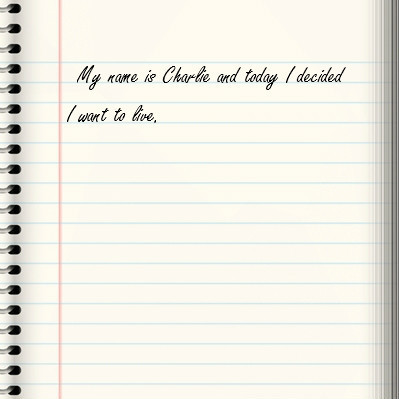 My name is Charlie and today I decided
I want to live.